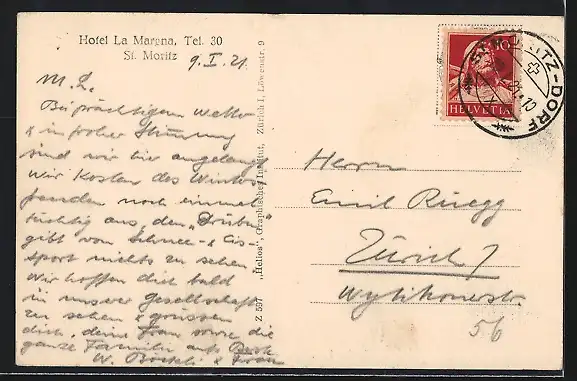 Hotel La Margna, Tel. 30
St. Moritz
9. I. 21
M. L.
Bei prächtigem Wetter
& in froher Stimmung
sind wir hier angelangt
Wir kosten des Winters
Freuden noch einmal
tüchtig aus, denn "Drüben"
gibt von Schnee- & Eis-
sport nichts zu sehen.
Wir hoffen dich bald
in unserer Gesellschaft
zu sehen & grüssen
dich, deine Frau sowie die
ganze Familie aufs Beste
W. & Frau
Z 597 "Helios", Graphisches Institut, Zürich I, Löwenstr. 9
HELVETIA
ST. MORITZ-DORF
Herrn
Emil Ruegg
Zürich 7
Wytikonerstr.
56